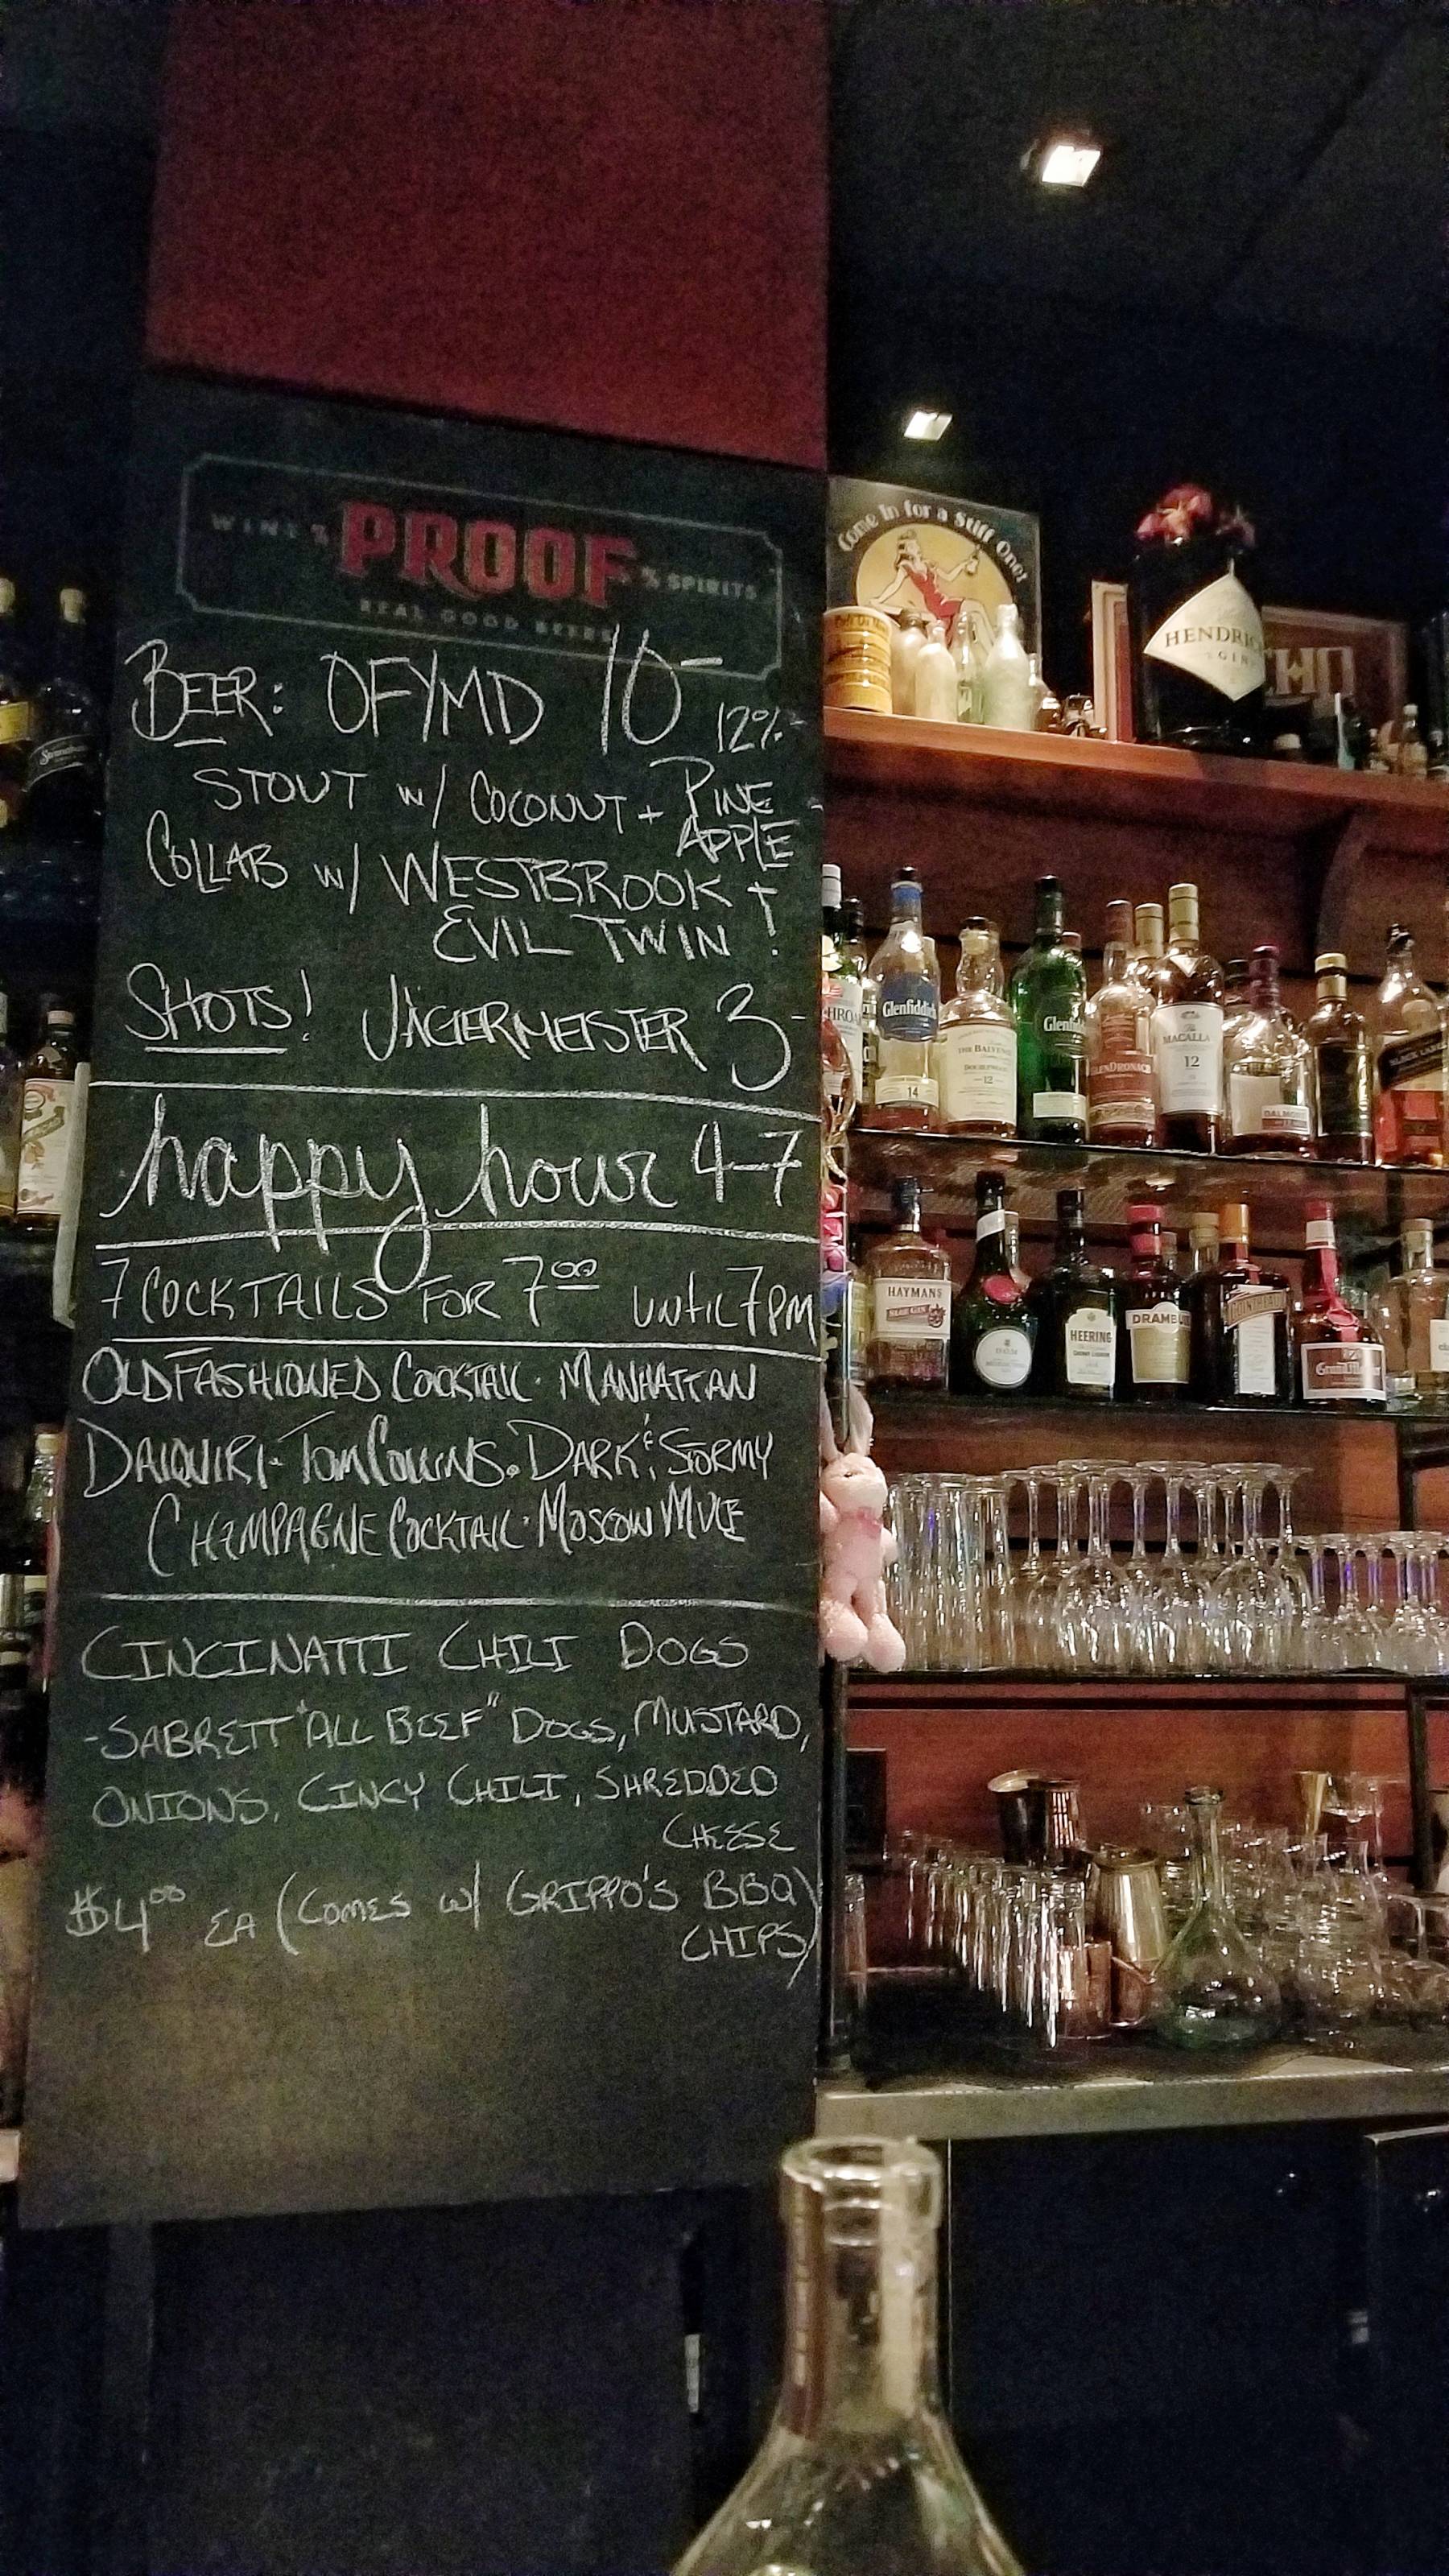 WINE % PROOF % SPIRITS
REAL GOOD BEERS
BEER: OFYMD 10- 12%
STOUT W/ COCONUT + PINE
APPLE
COLLAB W/ WESTBROOK +
EVIL TWIN!
SHOTS! JÄGERMEISTER 3-
happy hour 4-7
7 COCKTAILS FOR 7.00 until 7PM
OLDFASHIONED COCKTAIL · MANHATTAN
DAIQUIRI · TOM COLLINS · DARK & STORMY
CHAMPAGNE COCKTAIL · MOSCOW MULE
CINCINATTI CHILI DOGS
-SABRETT "ALL BEEF" DOGS, MUSTARD,
ONIONS, CINCY CHILI, SHREDDED
CHEESE
$4.00 EA (COMES W/ GRIPPO'S BBQ
CHIPS)
Come In for a Stiff One!
HENDRICK
GIN
Glenfiddich
14
THE BALVENIE
DOUBLEWOOD
12
Glenfid
GLENDRONACH
The
MACALLA
12
DALMORE
BLACK LABEL
HAYMAN'S
SLOE GIN
HEERING
CHERRY LIQUEUR
DRAMBUIE
COINTREAU
Grand M